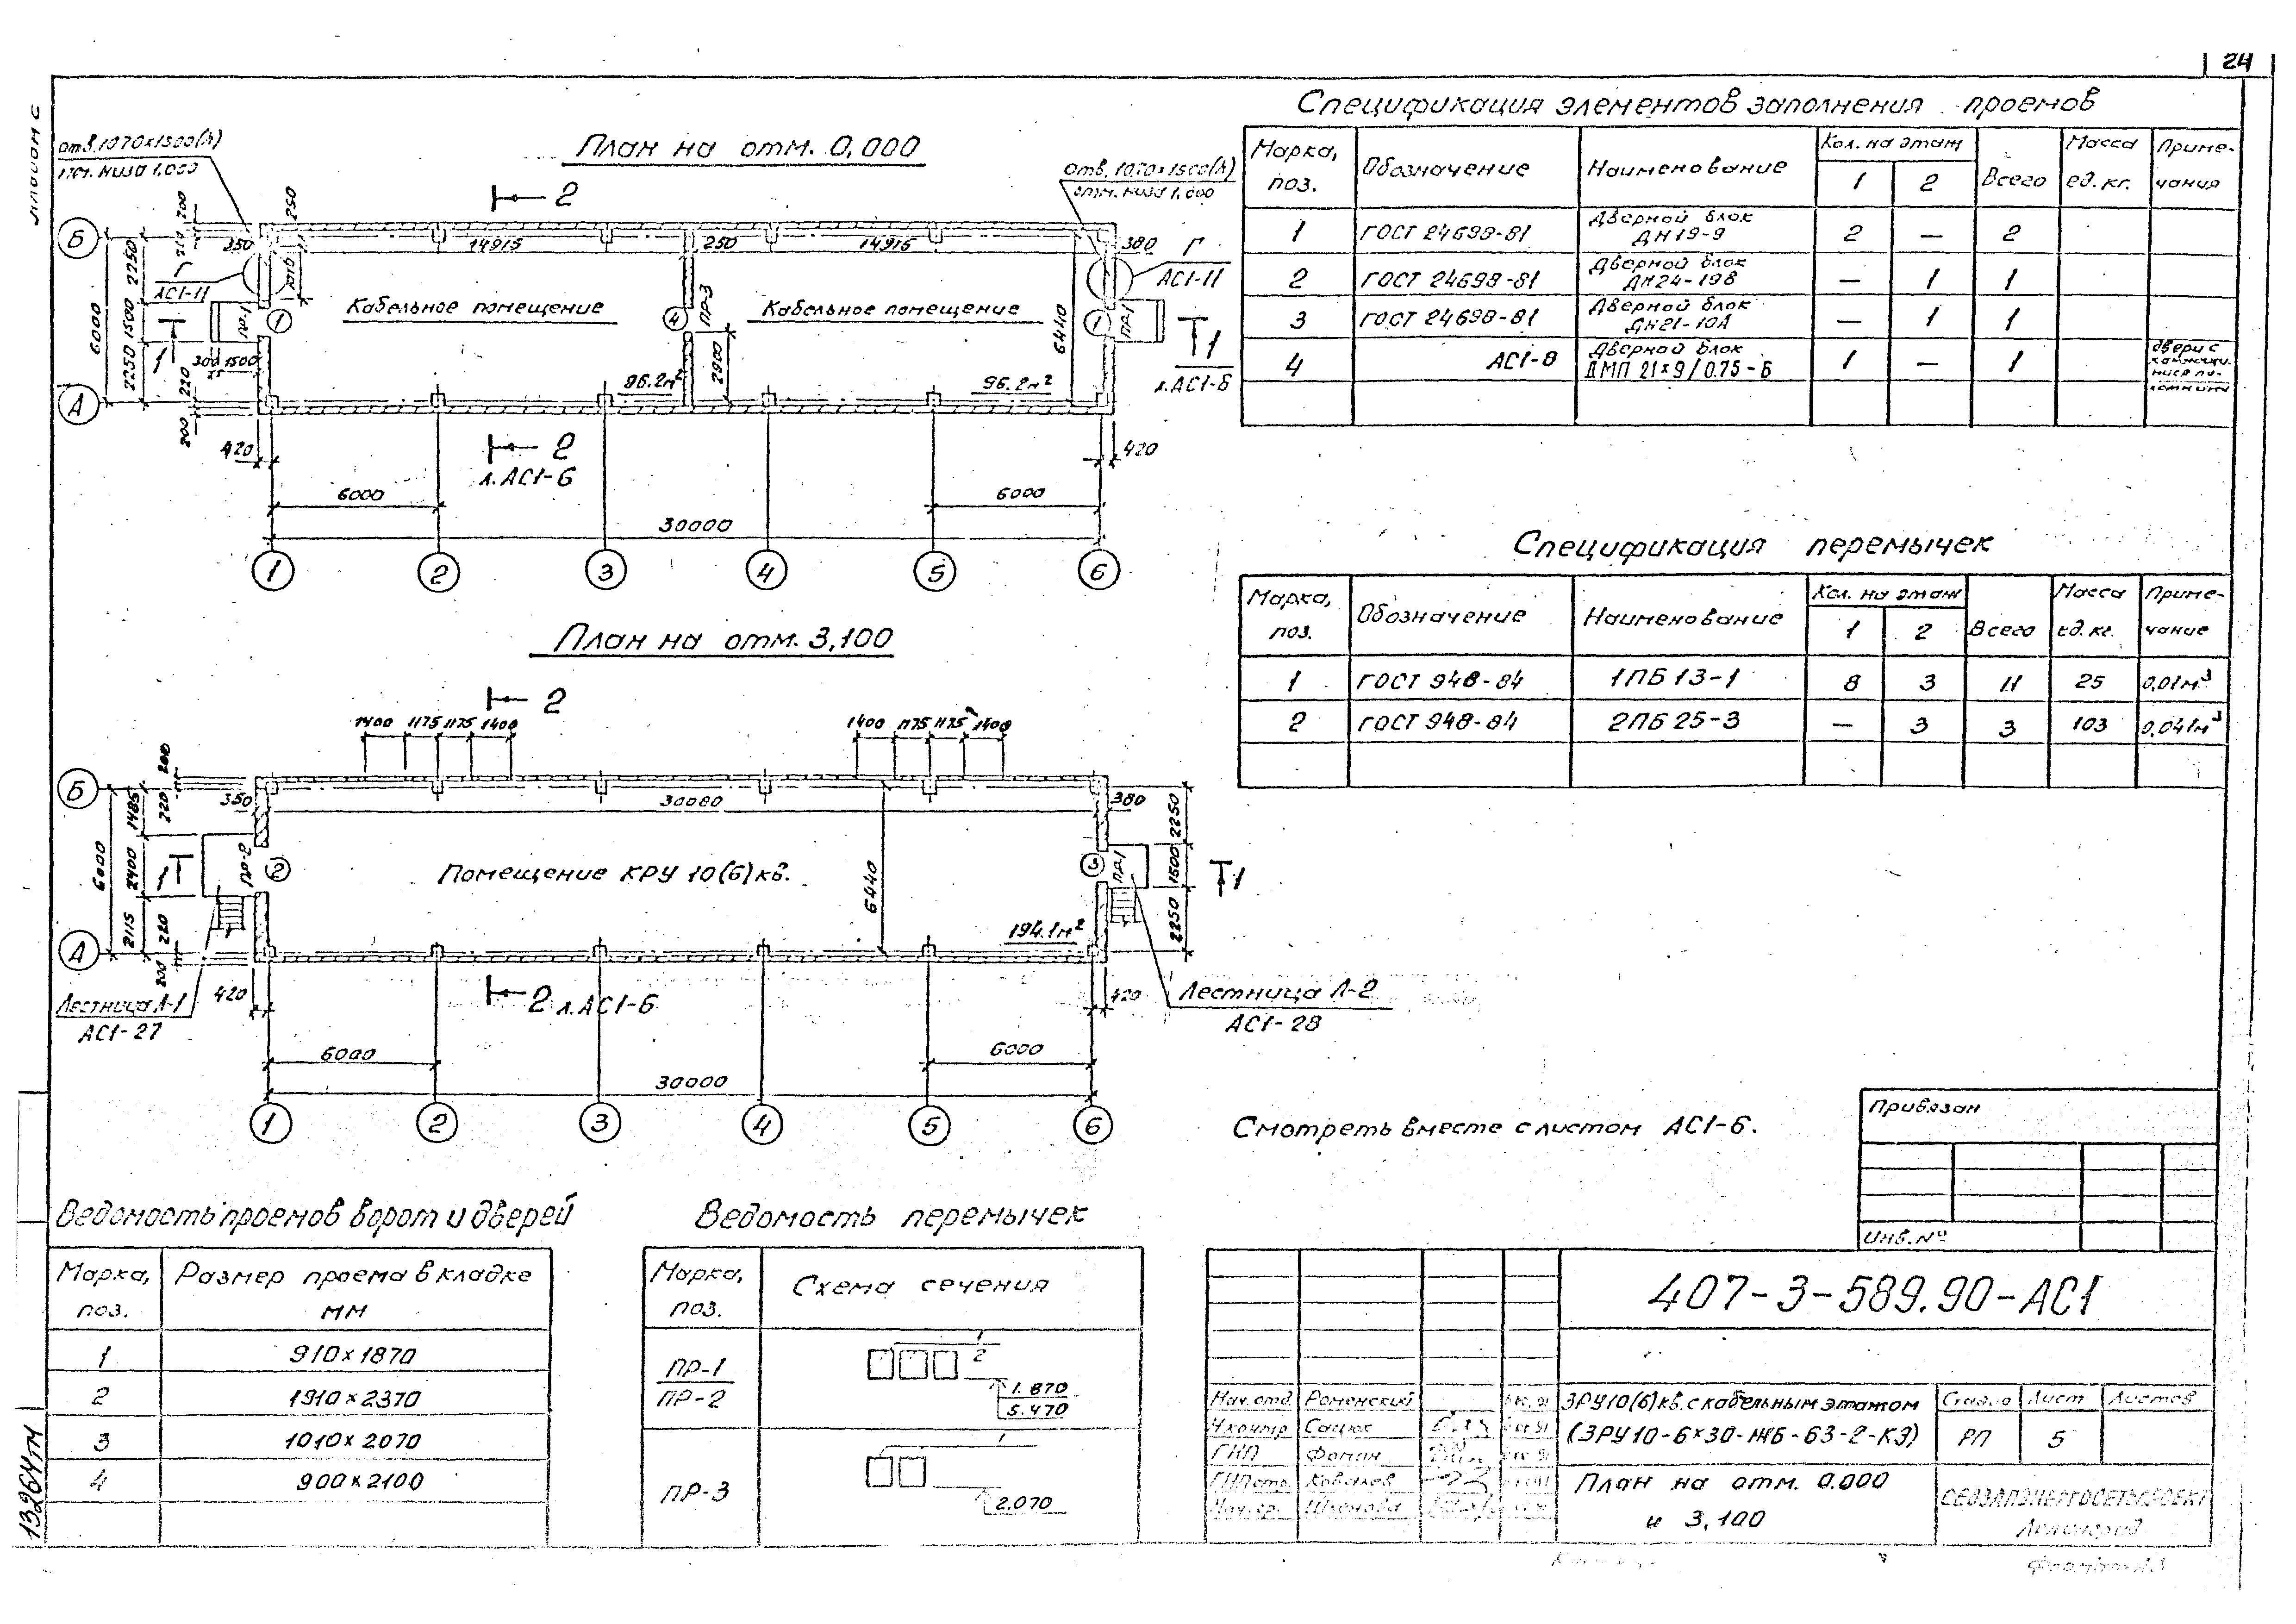 24
Альбом С
План на отм. 0,000
отв. 1070×1500(h)
отм. низа 1,000
отв. 1070×1500(h)
отм. низа 1,000
2
Б
А
14915
250
14915
350
380
250
200
2250
1500
2250
6000
220
200
Г
АС1-11
Г
АС1-11
Кабельное помещение
Кабельное помещение
ПР-1
1
4
ПР-3
1
ПР-1
6440
2900
300
1500
1
1
л.АС1-6
96.2м²
96.2м²
420
420
2
л.АС1-6
6000
6000
30000
1
2
3
4
5
6
План на отм. 3,100
2
1400 1175 1175 1400
1400 1175 1175 1400
Б
А
200
220
1485
2400
2115
6000
220
200
350
30080
380
2250
1500
2250
ПР-2
2
3
ПР-1
1
1
Помещение КРУ 10(6)кв.
6440
194.1м²
Лестница Л-1
АС1-27
420
2 л.АС1-6
420
Лестница Л-2
АС1-28
6000
6000
30000
1
2
3
4
5
6
Спецификация элементов заполнения проемов
Марка, поз.
Обозначение
Наименование
Кол. на этаж
1
2
Всего
Масса ед. кг.
Приме-
чания
1 ГОСТ 24698-81 Дверной блок ДН19-9 2 — 2
2 ГОСТ 24698-81 Дверной блок ДН24-19В — 1 1
3 ГОСТ 24698-81 Дверной блок ДН21-10А — 1 1
4 АС1-8 Дверной блок ДМП 21×9/0.75-Б 1 — 1
двери с
Спецификация перемычек
Марка, поз.
Обозначение
Наименование
Кол. на этаж
1
2
Всего
Масса ед. кг.
Приме-
чание
1 ГОСТ 948-84 1ПБ 13-1 8 3 11 25 0,01м³
2 ГОСТ 948-84 2ПБ 25-3 — 3 3 103 0,041м³
Смотреть вместе с листом АС1-6.
Привязан
Инв. №
Ведомость проемов ворот и дверей
Марка, поз.
Размер проема в кладке
мм
1 910×1870
2 1910×2370
3 1010×2070
4 900×2100
Ведомость перемычек
Марка, поз.
Схема сечения
ПР-1
ПР-2
1
2
1.870
5.470
ПР-3
1
2.070
407-3-589.90-АС1
Нач. отд. Роменский
Н.контр. Сацюк
ГИП Фомин
ГИПстр. Ковалев
ЗРУ10(6)кв. с кабельным этажом
(ЗРУ10-6×30-ЖБ-63-2-КЭ)
План на отм. 0.000
и 3,100
Стадия Лист Листов
РП 5
СЕВЗАПЭНЕРГОСЕТЬПРОЕКТ
Ленинград
Формат А3
13264тм